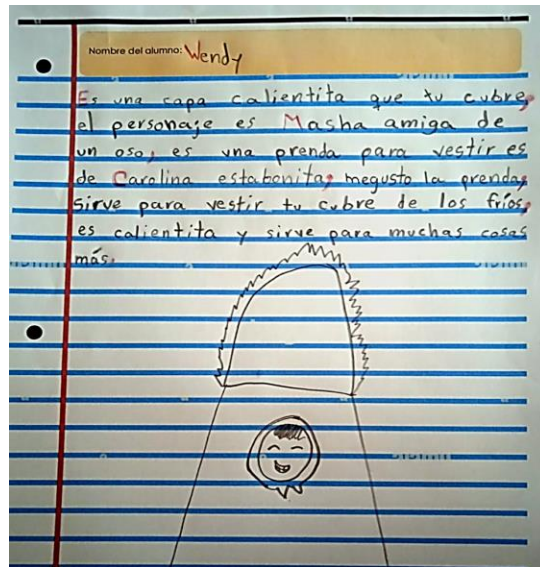 Nombre del alumno: Wendy
Es una capa calientita que tu cubre,
el personaje es Masha amiga de
un oso, es una prenda para vestir es
de Carolina estabonita, megusto la prenda,
sirve para vestir tu cubre de los fríos,
es calientita y sirve para muchas cosas
más.